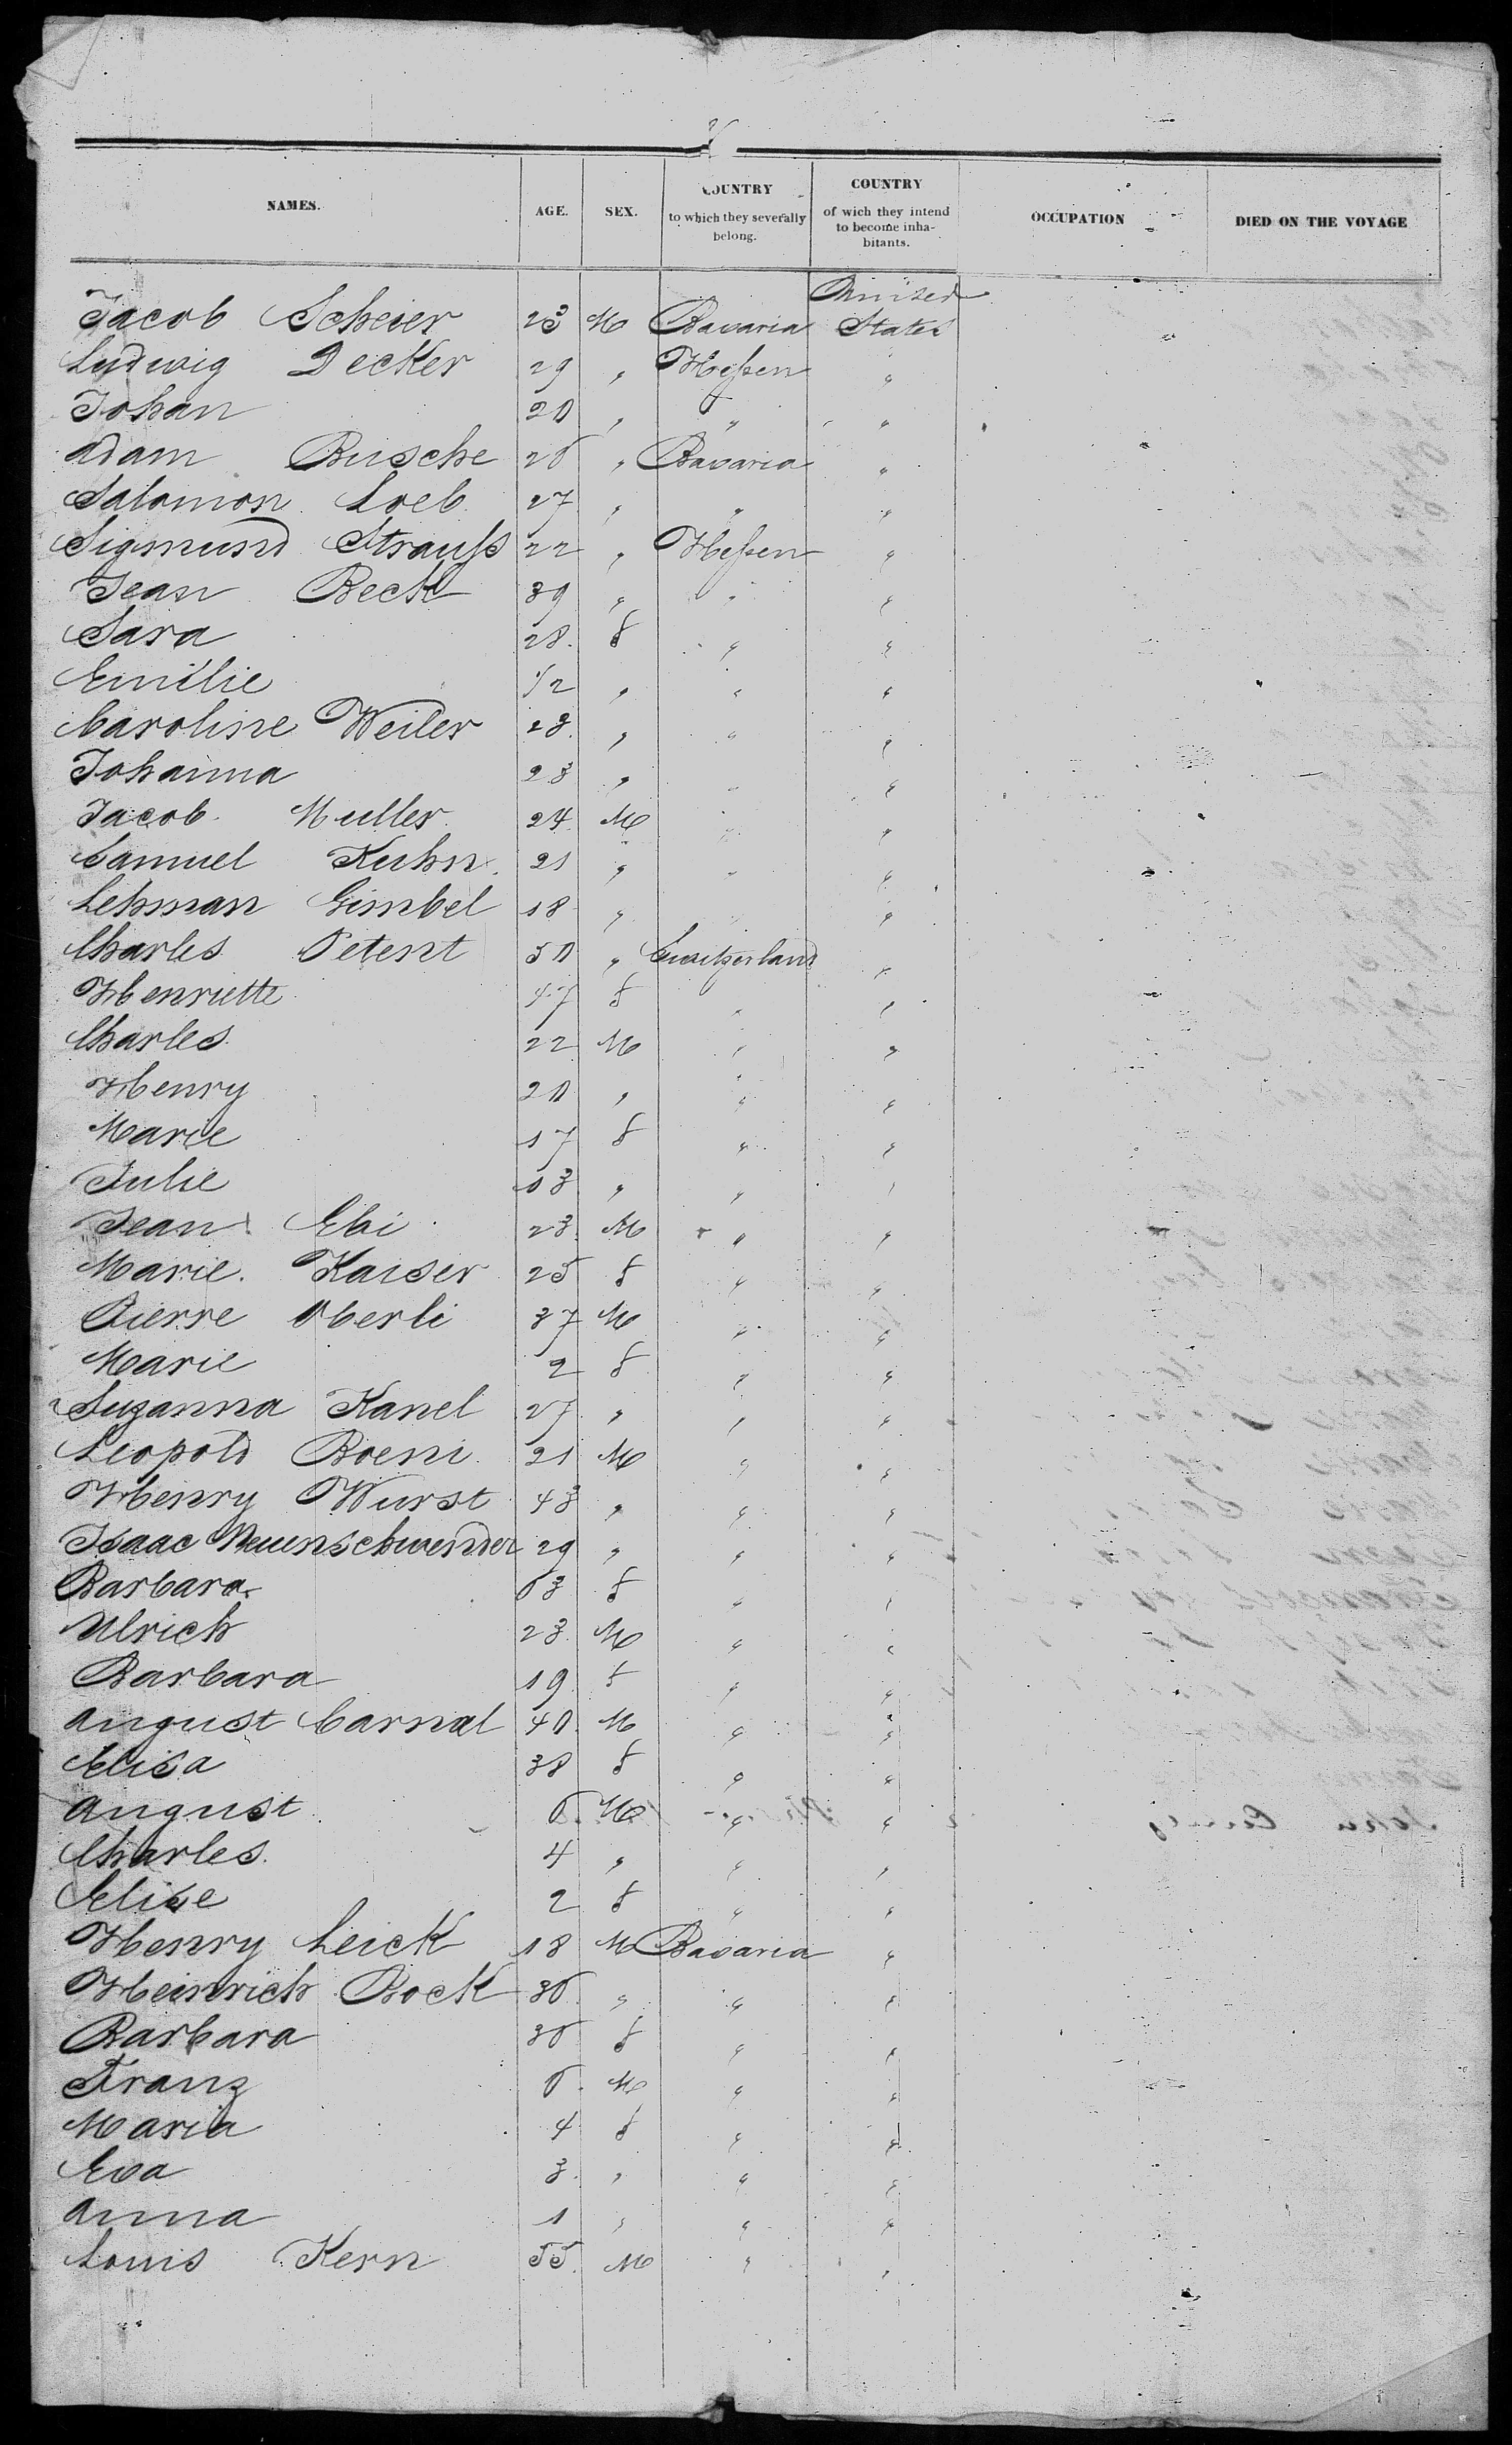 NAMES. AGE. SEX. COUNTRY to which they severally belong. COUNTRY of wich they intend to become inhabitants. OCCUPATION DIED ON THE VOYAGE
United
Jacob Scheier 23 M Bavaria States
Ludwig Decker 29 " Heßen "
Johan 20 " " "
Adam Busche 26 " Bavaria "
Salomon Loeb 27 " " "
Sigmund Strauß 22 " Heßen "
Jean Beck 39 " " "
Sara 28. f " "
Emilie 1/2 " " "
Caroline Weiler 28. " " "
Johanna 23 " " "
Jacob Muller 24 M " "
Samuel Kuhn. 21 " " "
Lehman Gimbel 18 " " "
Charles Petent 50 " Switzerland "
Henriette 47 f " "
Charles 22 M " "
Henry 20 " " "
Marie 17 f " "
Julie 13 " " "
Jean Ebi 23. M " "
Marie. Kaiser 25 f " "
Pierre Oberli 37 M " "
Marie 2 f " "
Suzanna Kanel 27 " " "
Leopold Boeni 21 M " "
Henry Wurst 43 " " "
Isaac Neuenschwender 29 " " "
Barbara 63 f " "
Ulrich 23. M " "
Barbara 19 f " "
August Carnal 40. M " "
Elisa 38 f " "
August 6 M " "
Charles 4 " " "
Elise 2 f " "
Henry Leick 18 M Bavaria "
Heinrich Bock 36 " " "
Barbara 36 f " "
Franz 6. M " "
Maria 4 f " "
Eva 3. " " "
Anna 1 " " "
Louis Kern 55. M " "